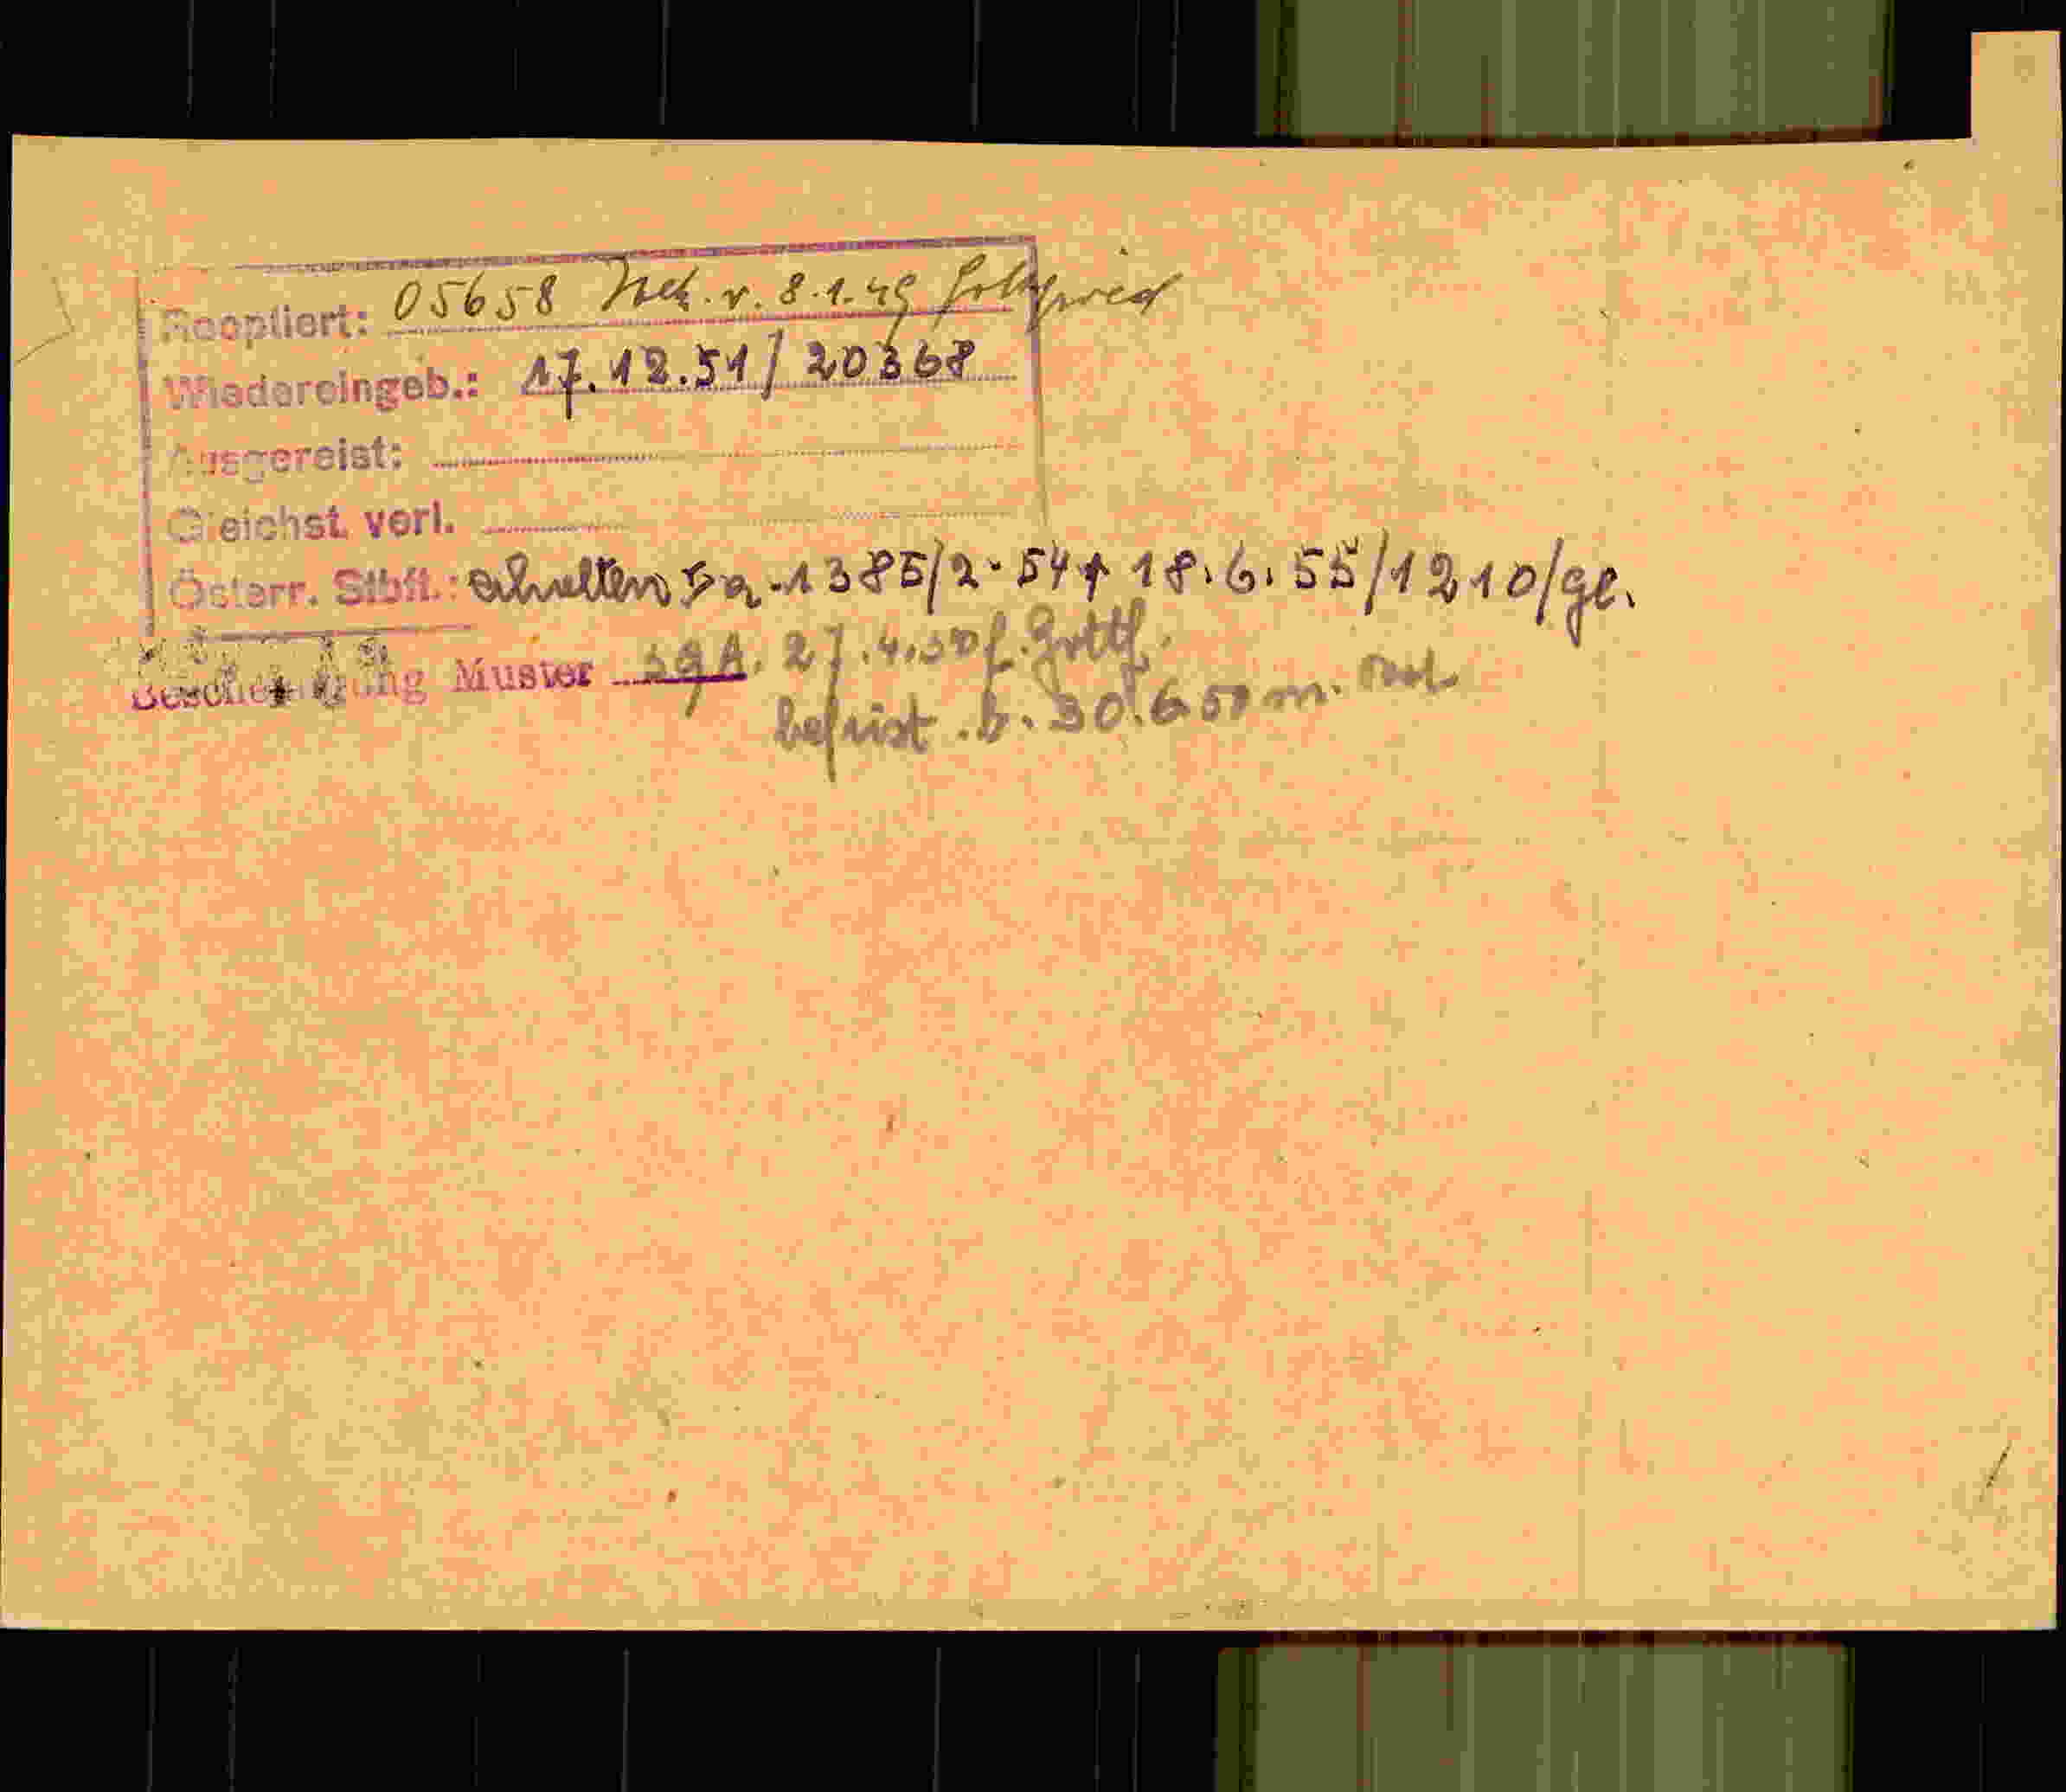 Reoptiert: 05658 v. 8.1.49
Wiedereingeb.: 17.12.51/20368
Ausgereist:
Gleichst. verl.
Österr. Stbft.: erhalten 5a-1385/2-54 18.6.55/1210/gl.
Bescheinigung Muster 27.4.50 f. Gottf.
befrist. b. 30.6.50 m.